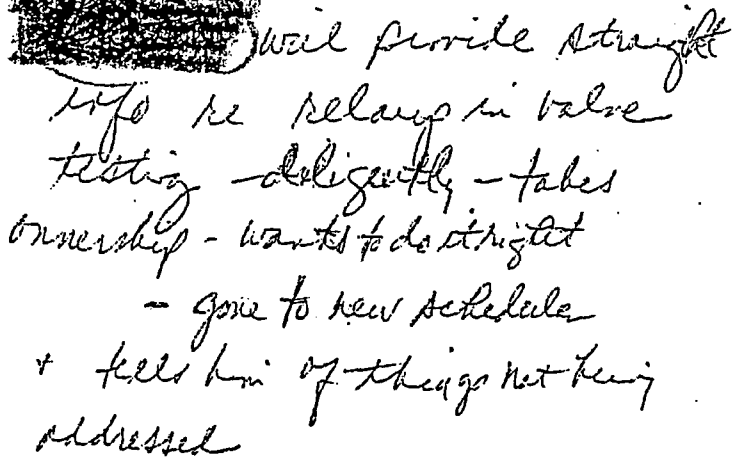 will provide straight
info re in valve
testing - diligently - takes
ownership - wants to do it right
- gone to new scheduler
+ tells him of things not being
addressed